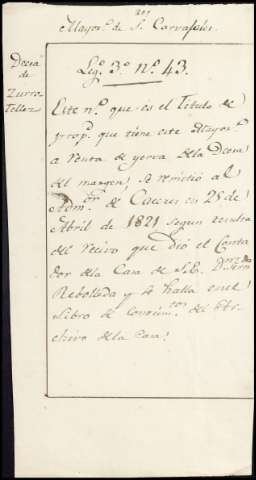 Mayor.º de S. Carvajales.
Decsa
de
Zurro
Tellez
Leg.º 3.º n.º 43.
Este n.º que es el Titulo de
prop.d que tiene este Mayor.º
a renta de yerva de la Decsa
del margen; Se remitió al
Adm.or de Caceres en 25 de
Abril de 1821 segun resulta
del recivo que dió el Conta
dor de la Casa de S.E. D.n
Rebolleda y se halla en el
Libro de conocim.tos del Ar-
chivo de la Casa.